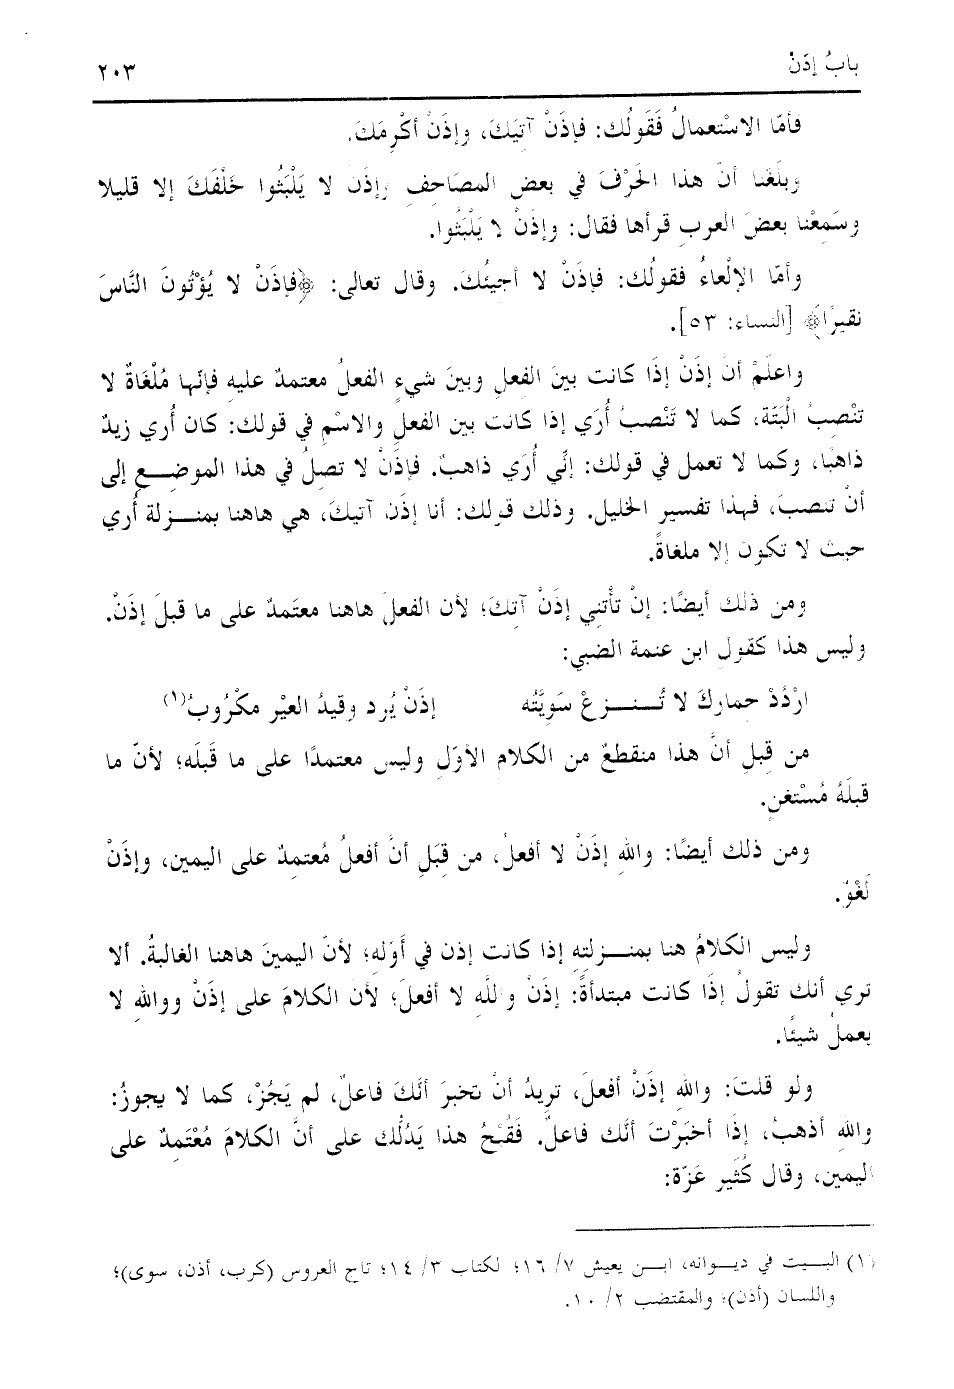 بابُ إذَنْ ٢٠٣
فأمّا الاسْتعمالُ فَقَولُك: فإذَنْ آتيَكَ، وإذَنْ أكْرِمَكَ.
وبلَغَنا أنّ هذا الحَرْفَ في بعض المصَاحفِ وإذَن لا يَلْبَثُوا خَلْفَكَ إلا قليلا
وسَمِعْنا بعضَ العربِ قرأها فقال: وإذَنْ لا يَلْبَثُوا.
وأمّا الإلْغاءُ فقولُك: فإذَنْ لا أجيئُكَ. وقال تعالى: ﴿فإذَنْ لا يُؤْتُونَ النَّاسَ
نقيرًا﴾ [النساء: ٥٣].
واعلَمْ أنّ إذَنْ إذَا كانت بينَ الفعلِ وبينَ شيءٍ الفعلُ معتمدٌ عليه فإنّها مُلْغاةٌ لا
تنْصِبُ الْبَتّة، كما لا تَنْصبُ أُرَي إذا كانت بين الفعلِ والاسْمِ في قولك: كان أُري زيدٌ
ذاهبًا، وكما لا تعمل في قولك: إنّي أُرَي ذاهبٌ. فإذَنْ لا تصلُ في هذا الموضـع إلى
أنْ تنصبَ، فهذا تفسير الخليل. وذلك قولك: أنا إذَن آتيكَ، هي هاهنا بمنـزلة أُري
حيث لا تكون إلا ملغاةً.
ومن ذلك أيضًا: إنْ تأْتني إذَنْ آتكَ؛ لأن الفعلَ هاهنا معتَمدٌ على ما قبلَ إذَنْ.
وليس هذا كقول ابن عنمة الضبي:
ارْدُدْ حمارك لا تُـنـزعْ سَويَّتُه إذَنْ يُرد وقيدُ العيْر مكْرُوبُ(١)
من قِبلِ أنَّ هذا منقطعٌ من الكلام الأوّل وليس معتمدًا على ما قَبلَه؛ لأنّ ما
قبلَهُ مُسْتغنٍ.
ومن ذلك أيضًا: واللهِ إذَنْ لا أفعلُ، من قِبَلِ أنَّ أفعلُ مُعتمِدٌ على اليمين، وإذَنْ
لَغْوٌ.
وليس الكلامُ هنا بمنـزلته إذا كانت إذن في أوّله؛ لأنّ اليمينَ هاهنا الغالبةُ. ألا
تري أنك تقولُ إذَا كانت مبتدأةً: إذَنْ واللَّه لا أفعلَ؛ لأن الكلامَ على إذَنْ وواللهِ لا
يعملُ شيئًا.
ولو قلتَ: واللهِ إذَنْ أفعلَ، تريدُ أنْ تخبرَ أنّكَ فاعلٌ، لم يَجُزْ، كما لا يجوزُ:
واللهِ أذهبُ، إذَا أخبَرْتَ أنّك فاعلٌ. فَقُبْحُ هذا يَدُلُّك على أنّ الكلامَ مُعْتَمِدٌ على
اليمين، وقال كُثَيرِ عَزّة:
(١) البـيت في ديـوانه، ابـن يعيش ٧/ ١٦؛ لكتاب ٣/ ١٤؛ تاج العروس (كرب، أذن، سوى)؛
واللسان (أذن)؛ والمقتضب ٢/ ١٠.